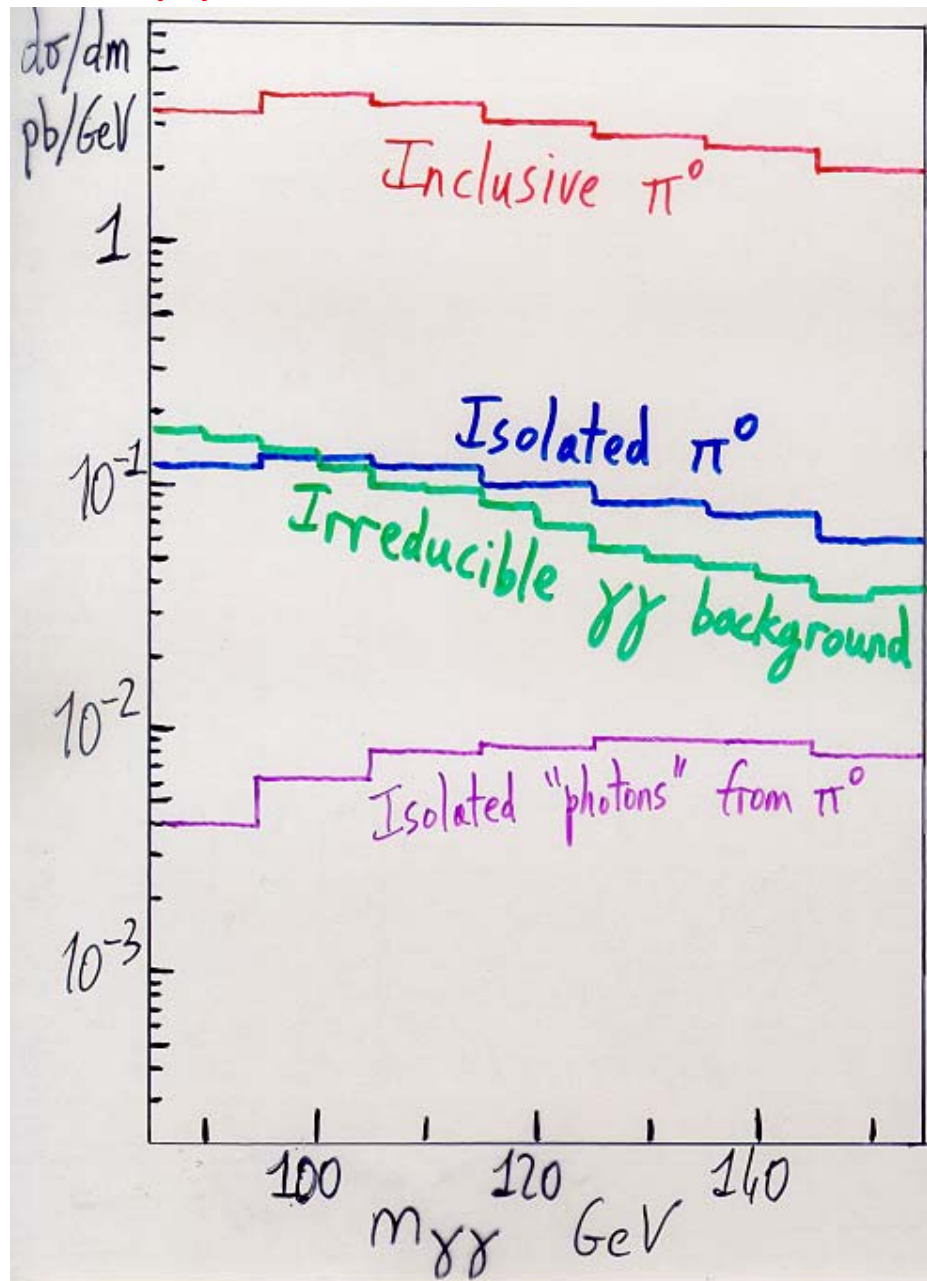 dσ/dm
pb/GeV
Inclusive π⁰
1
Isolated π⁰
10⁻¹
Irreducible γγ background
10⁻²
Isolated "photons" from π⁰
10⁻³
100 120 140
mγγ GeV